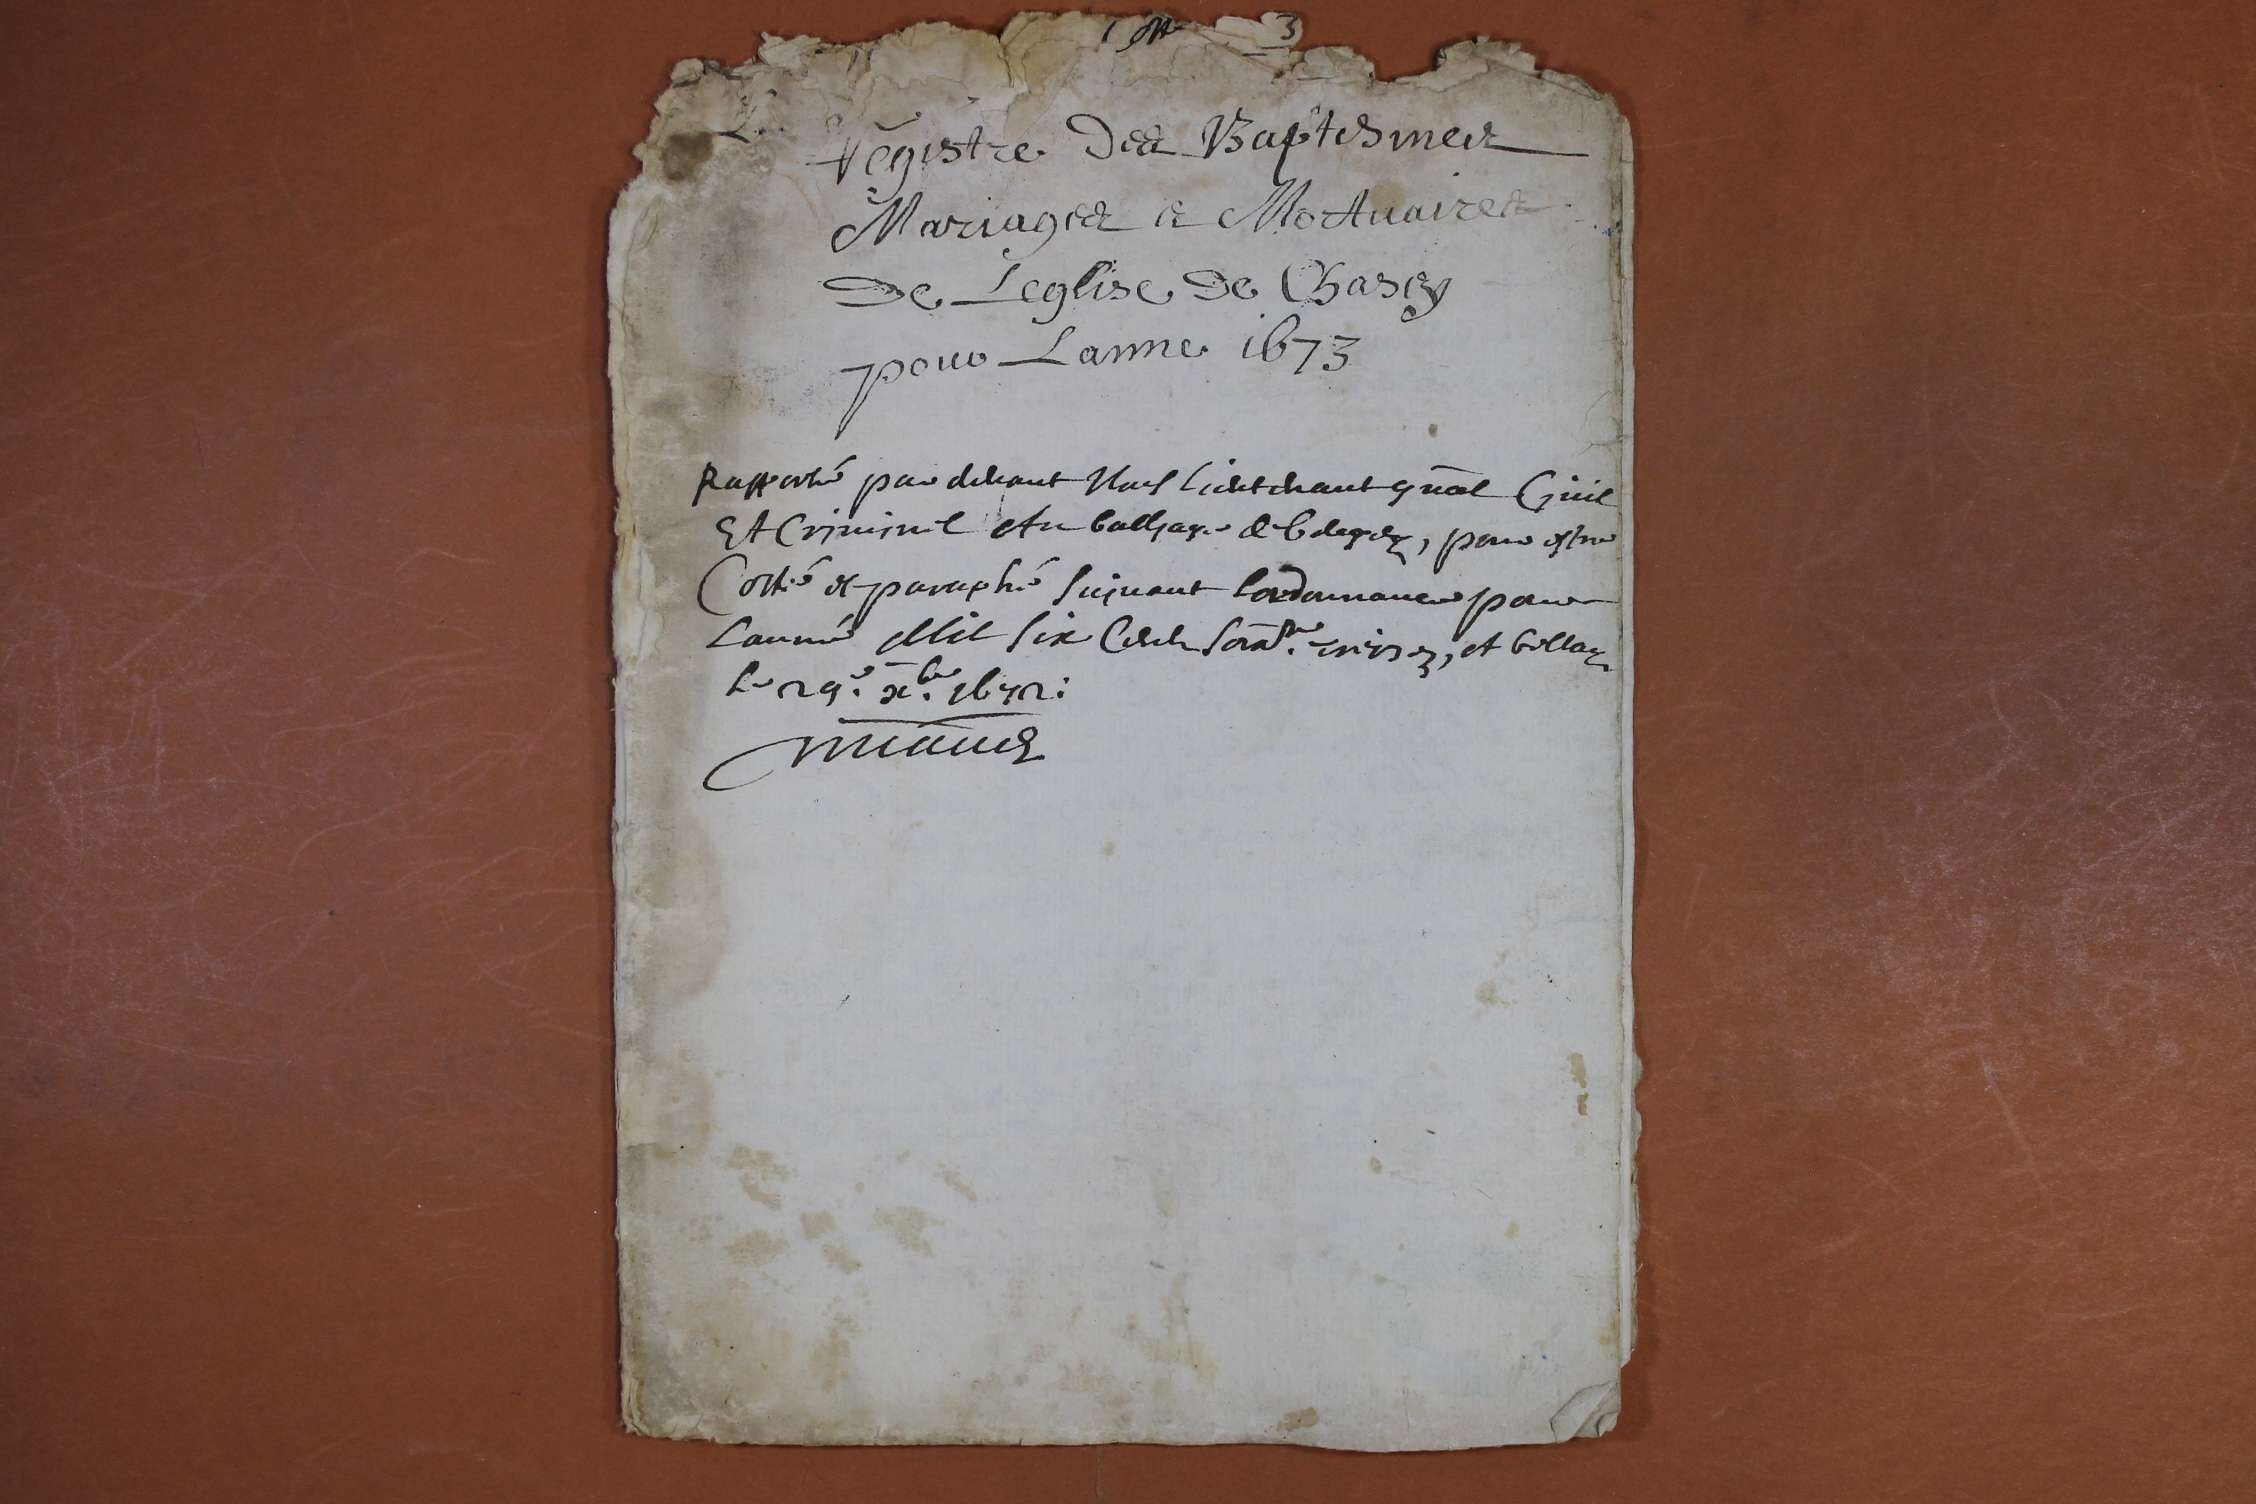 3
Registre Des Baptesmes
Mariages et Mortuaires
De Leglise De Chasey
pour Lanne 1673
Rapporté par devant Nous Lieutenant gnãl Civil
Et Criminel Au balliage de , pour estre
Cotté et paraphé suivant Lordonnance pour
Lannée Mil Six Cents soixte treize, et
Le 29e xbre 1672: